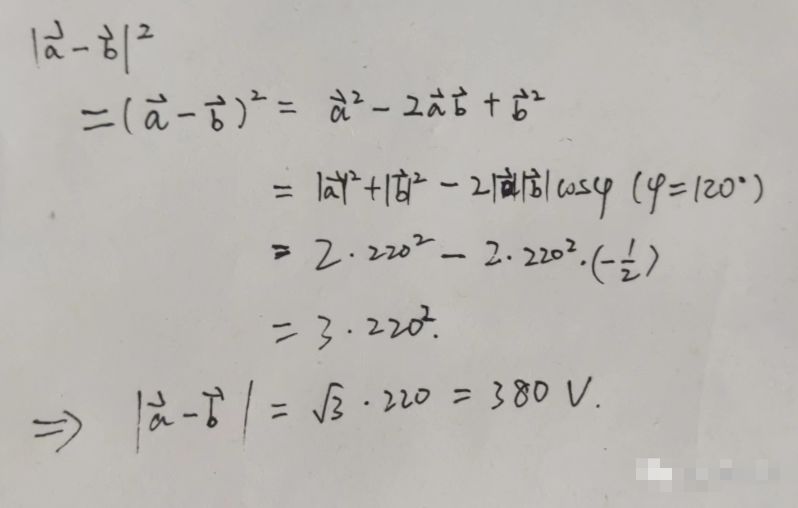 |a⃗ - b⃗|²
= (a⃗ - b⃗)² = a⃗² - 2a⃗b⃗ + b⃗²
= |a⃗|² + |b⃗|² - 2|a⃗||b⃗|cosφ (φ=120°)
= 2·220² - 2·220²·(-1/2)
= 3·220².
⇒ |a⃗ - b⃗| = √3·220 = 380 V.